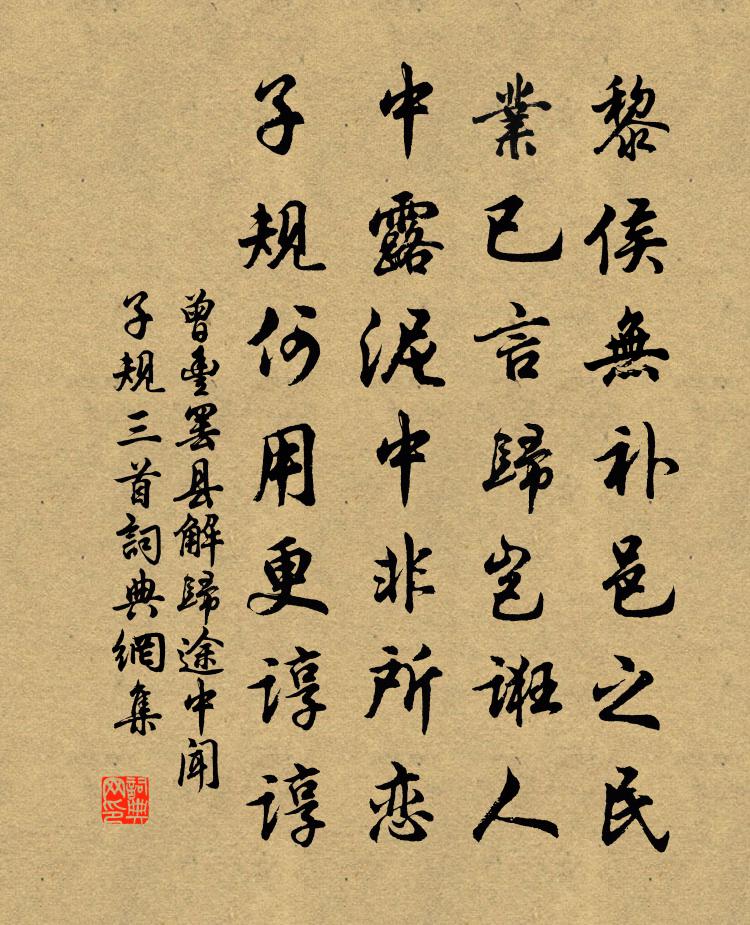 黎侯無补邑之民
業已言歸岂诳人
中露泥中非所恋
子规何用更谆谆
曾豐罢县解歸途中闻
子规三首詞典網集
詞典网印